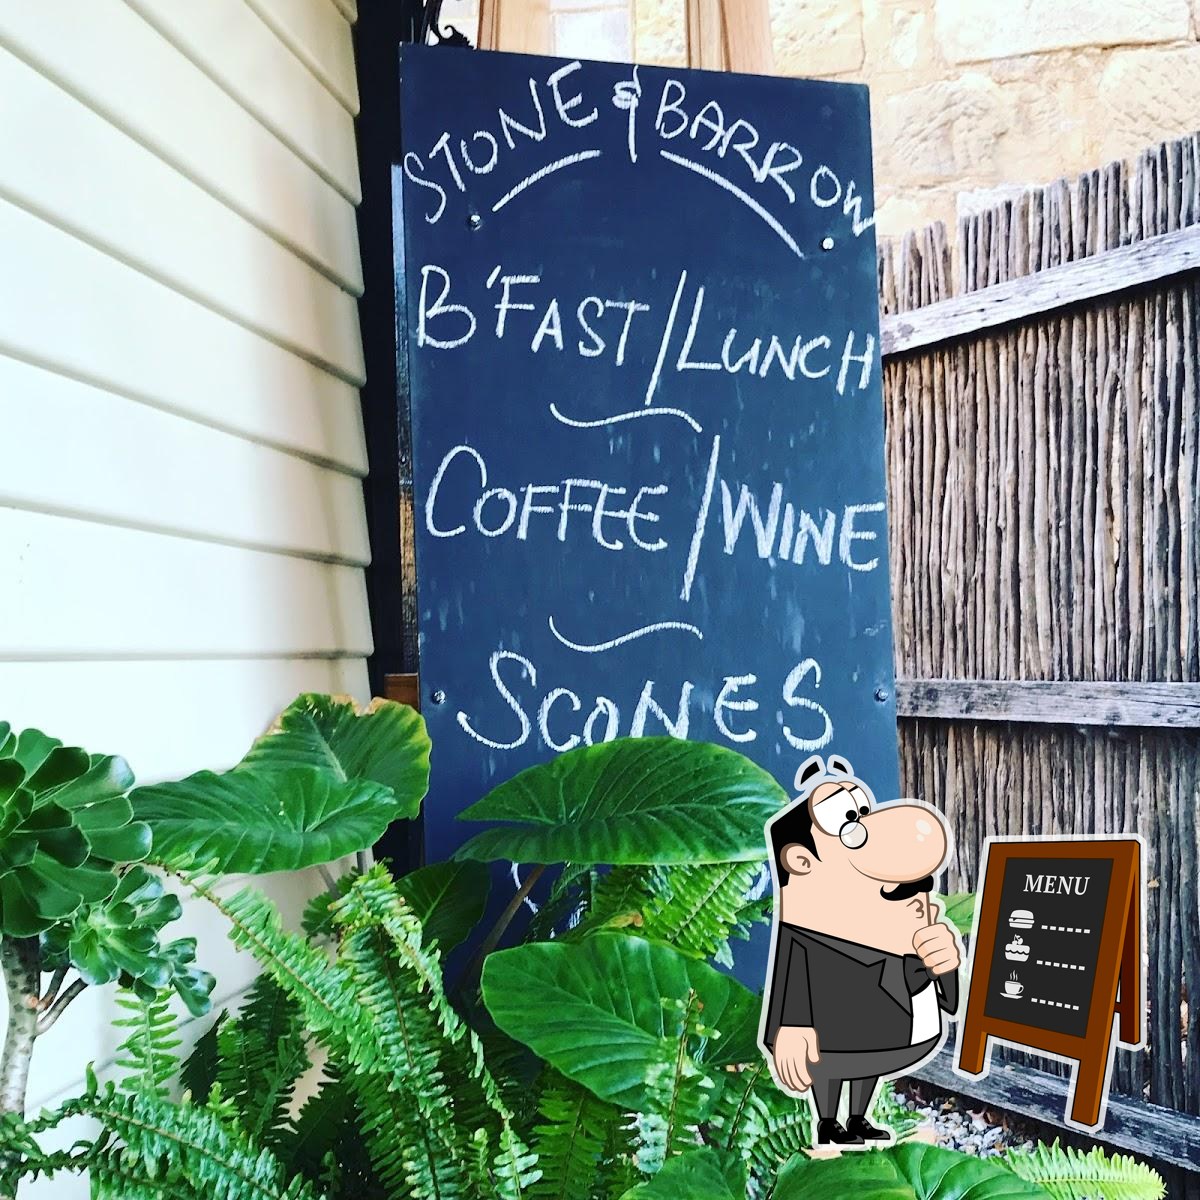 STONE & BARROW
B'FAST/LUNCH
COFFEE/WINE
SCONES
MENU